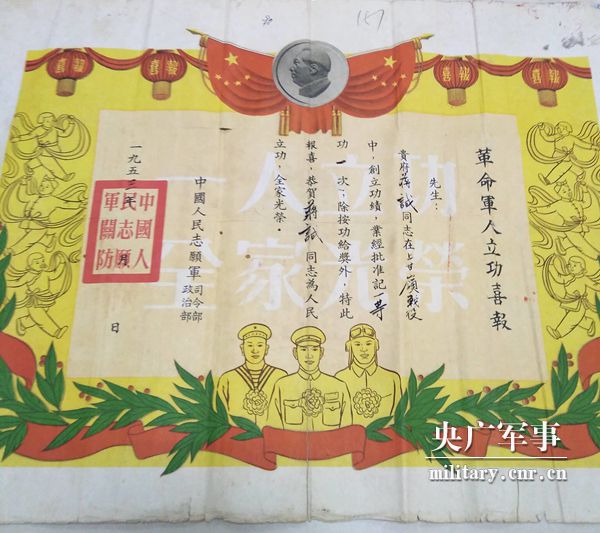 157
喜報
喜報
喜報
喜報
一人立功
全家光榮
革命軍人立功喜報
先生：
貴府蔣誠同志在上甘嶺戰役
中，創立功績，業經批准記一等
功一次；除按功給獎外，特此
報喜，恭賀蔣誠同志為人民
立功，全家光榮。
中國人民志願軍司令部
政治部
一九五三年 月 日
中國人
民志願
軍關防
央广军事
military.cnr.cn